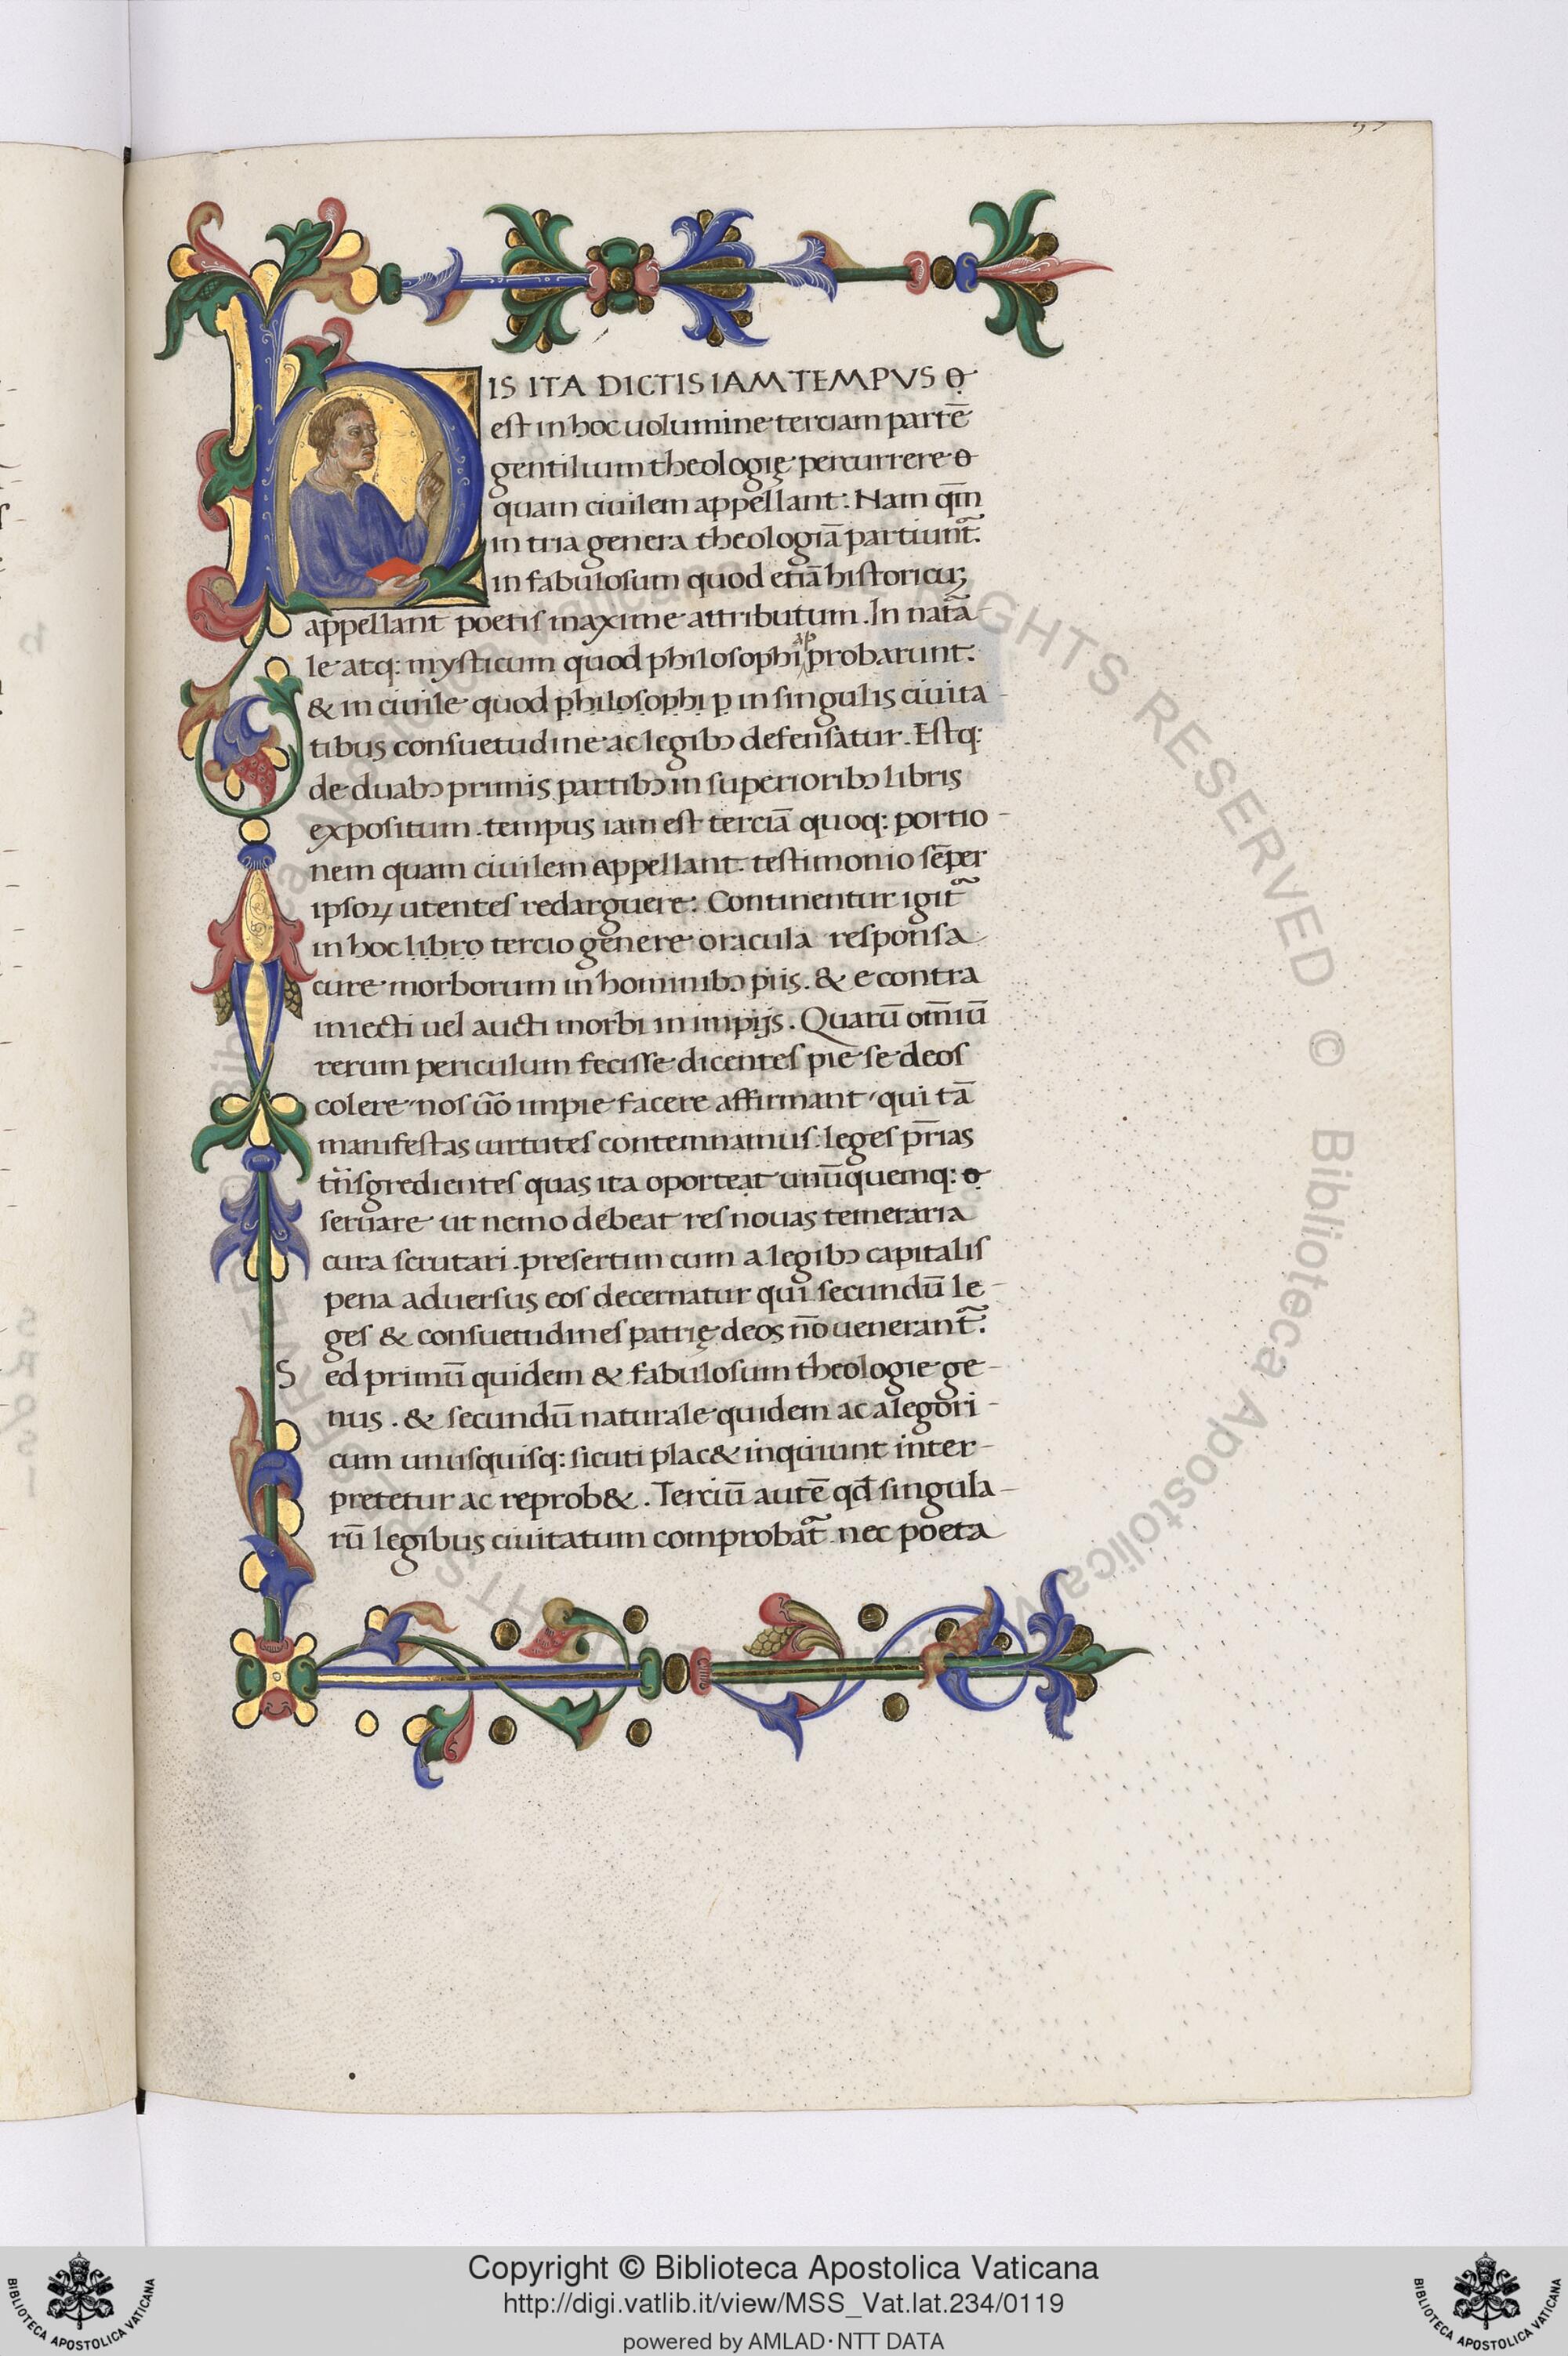 HIS ITA DICTIS IAM TEMPVS
est in hoc uolumine terciam partē
gentilium theologię percurrere
quam ciuilem appellant: Nam qm̄
in tria genera theologiā partiunt᷒.
in fabulosum quod etiā historicuꝫ
appellant poetis maxime attributum. In natā
le atq: mysticum quod philosophi probarunt.
& in ciuile quod p̣ḥịḷọṣọp̣ḥị p̣ in singulis ciuita-
tibus consuetudine ac legibꝰ defensatur. Estq:
de duabꝰ primis partibꝰ in superioribꝰ libris
expositum. tempus iam est terciā quoq: portio-
nem quam ciuilem appellant. testimonio sēper
ipsoꝝ utentes redarguere: Continentur igit᷒
in hoc libro tercio genere oracula responsa
cure morborum in hominibꝰ piis. & e contra
iniecti uel aucti morbi in impijs. Quarū om̄iū
rerum periculum fecisse dicentes pie se deos
colere nos ūo impie facere affirmant qui tā
manifestas uirtutes contemnamus: leges pr̄ias
tn̄sgredientes quas ita oporteat unūquemq:
seruare ut nemo debeat res nouas temeraria
cura scrutari. presertim cum a legibꝰ capitalis
pena aduersus eos decernatur qui secundū le-
ges & consuetudines patrię deos nō uenerant᷒.
Sed primū quidem & fabulosum theologie ge-
nus. & secundū naturale quidem ac alegori-
cum unusquisq: sicuti plac& inquiunt inter-
pretetur ac reprob&. Terciū autē qd̄ singula-
rū legibus ciuitatum comprobat᷒ nec poeta
ALL RIGHTS RESERVED © Biblioteca Apostolica Vaticana
Copyright © Biblioteca Apostolica Vaticana
http://digi.vatlib.it/view/MSS_Vat.lat.234/0119
powered by AMLAD·NTT DATA
BIBLIOTECA APOSTOLICA VATICANA
BIBLIOTECA APOSTOLICA VATICANA